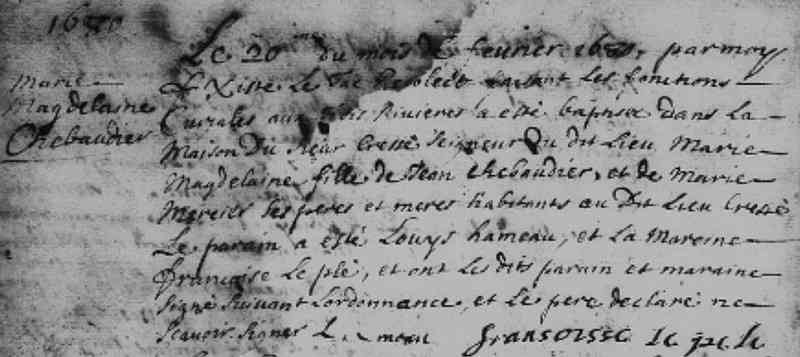 1680
Le 20 me du mois de fevrier 1680, par moy
Marie
Magdelaine
Chebaudier
Sixiste Le Tac Recolect faisant les fonctions
Curiales aux trois Rivieres a esté baptisée dans La
Maison Du Sieur Cressé Seigneur Du dit Lieu Marie
Magdelaine fille de Jean Chebaudier, et de Marie
Mercier Ses peres et meres habitants au Dit Lieu Cressé
Le parain a esté Louys hameau, et La Maraine
françoise Le plé, et ont les dits parain et maraine
signé suivant Lordonnance, et Le pere declare ne
scavoir signer L. meau fransoisse le pele